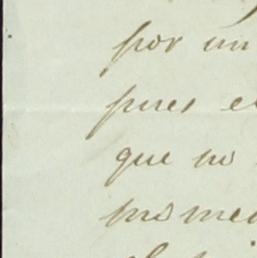 por un
pues e
que no
mo me